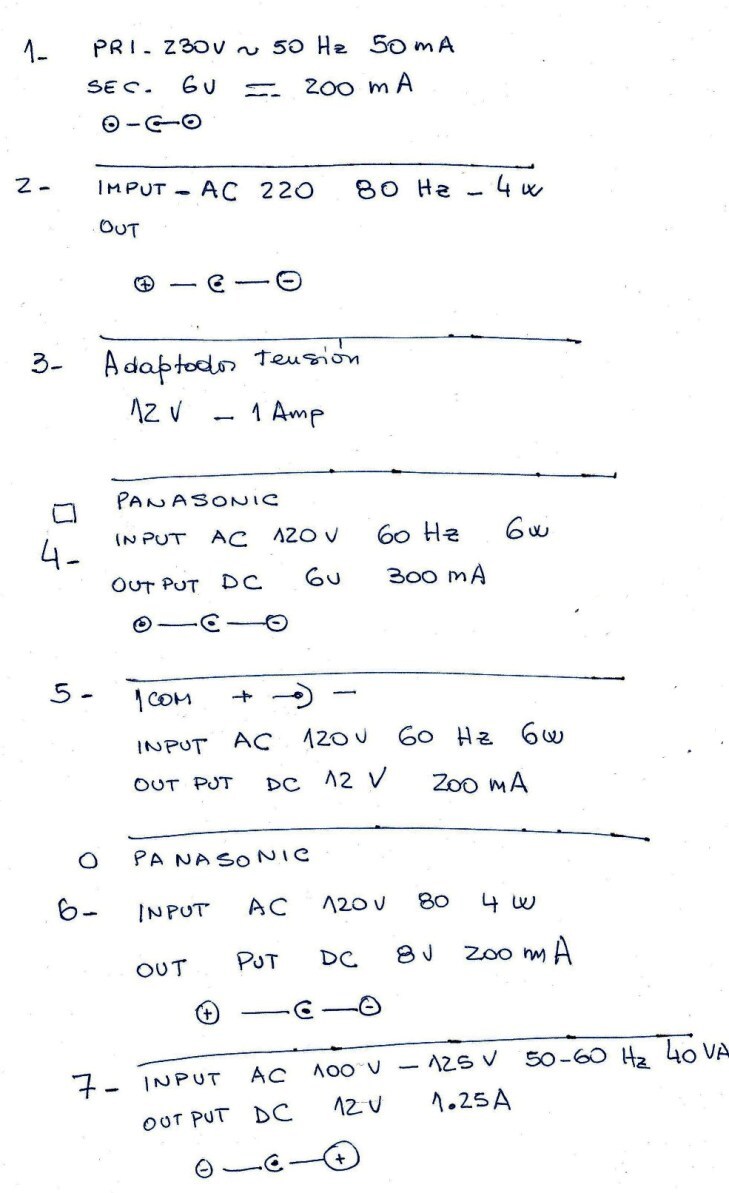 1- PRI- 230V ~ 50 Hz 50 mA
SEC. 6V 200 mA
2- IMPUT - AC 220 80 Hz - 4w
OUT
+ - -
3- Adaptador Tensión
12 V - 1 Amp
PANASONIC
4- INPUT AC 120 V 60 Hz 6w
OUT PUT DC 6V 300 mA
5- ICOM + -
INPUT AC 120V 60 Hz 6w
OUT PUT DC 12 V 200 mA
PANASONIC
6- INPUT AC 120V 80 4 W
OUT PUT DC 8V 200 mA
+ - -
7- INPUT AC 100 V - 125 V 50-60 Hz 40 VA
OUT PUT DC 12V 1.25A
- - +